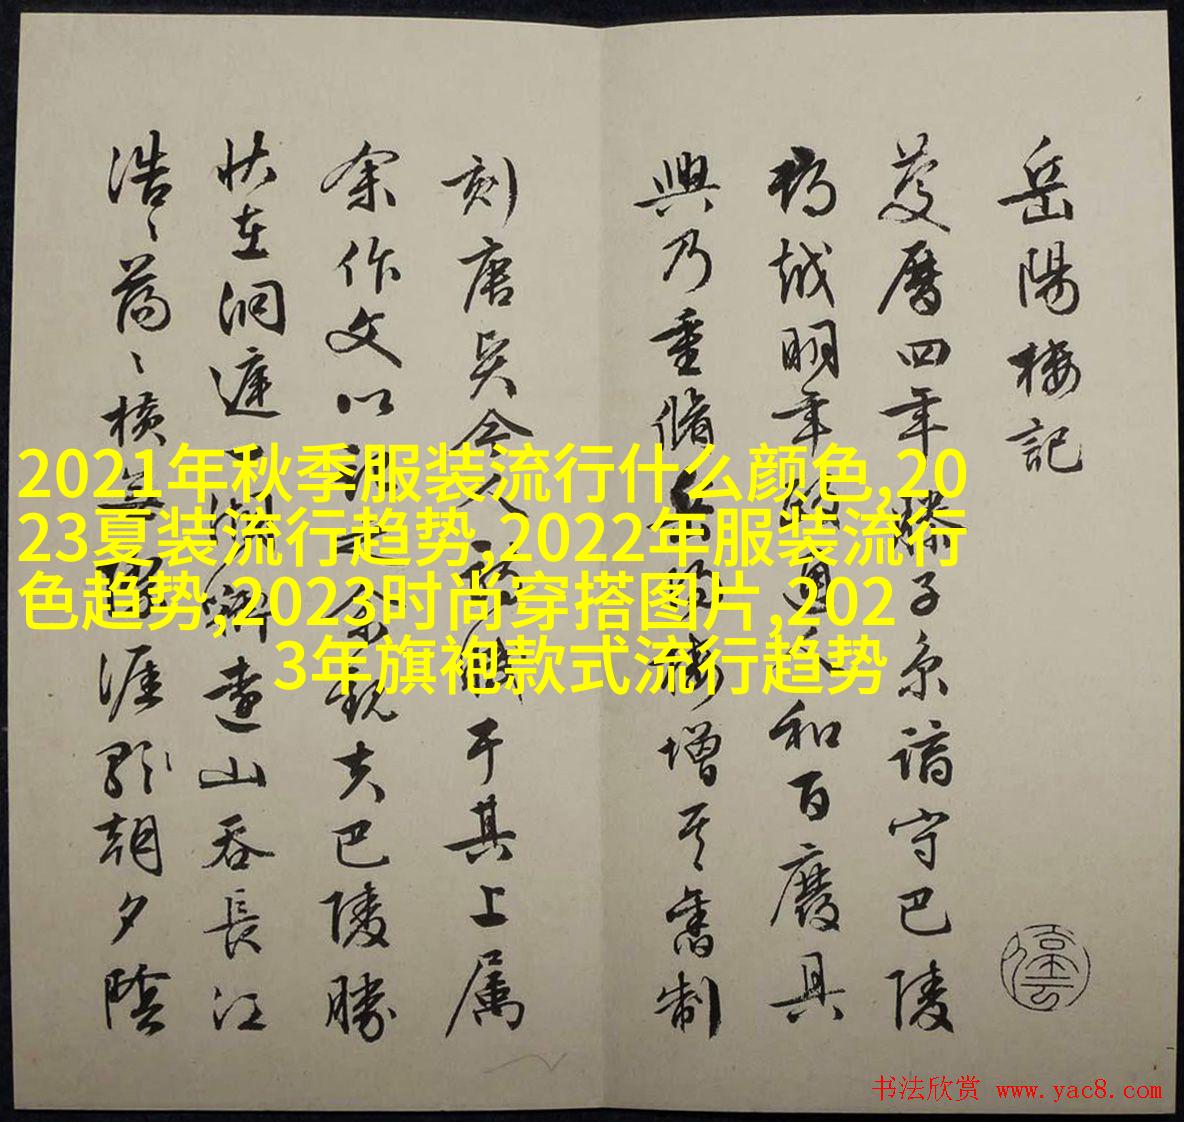 岳陽樓記
慶曆四年滕子京謫守巴陵
郡越明年政通人和百廢具
興乃重脩岳陽樓增其舊制
刻唐賢今人詩賦于其上属
余作文以記之余觀夫巴陵勝
状在洞庭一湖銜遠山吞長江
浩〻蕩〻横無際涯朝夕陰
2021年秋季服装流行什么颜色,20
23夏装流行趋势,2022年服装流行
色趋势,2023时尚穿搭图片,202
3年旗袍款式流行趋势
书法欣赏 www.yac8.com